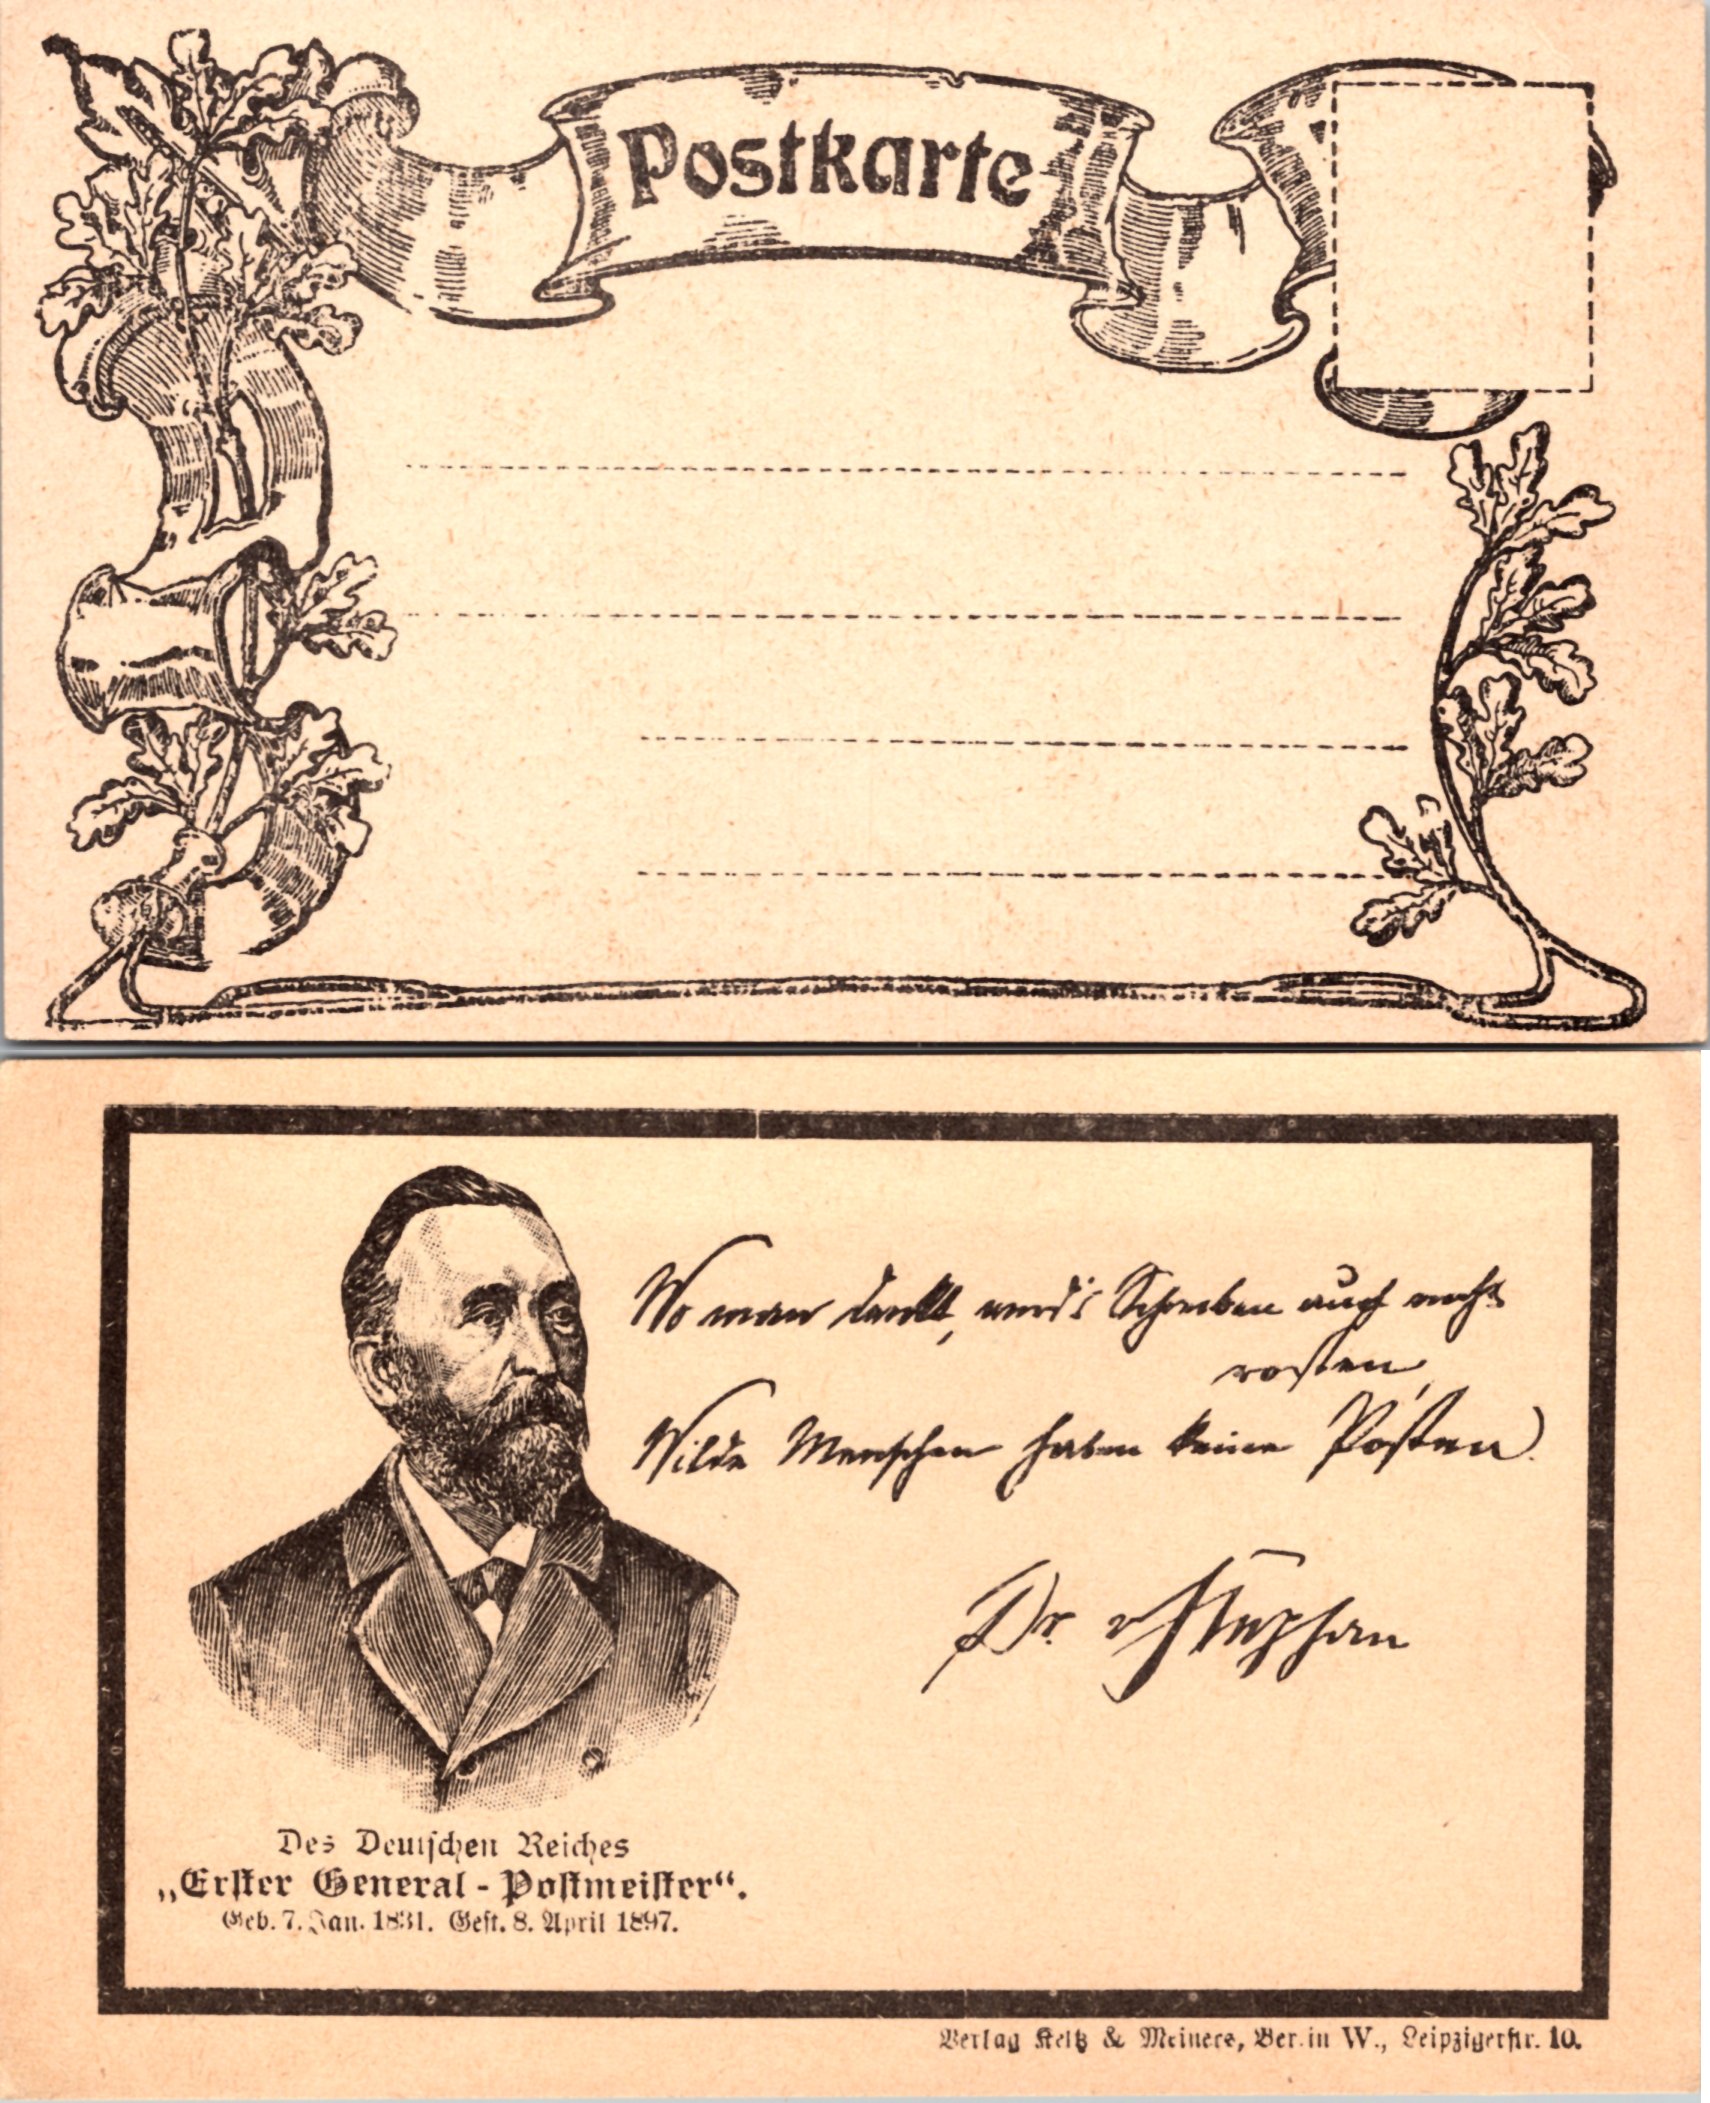 Postkarte
Wo man denkt, wird's Schreiben auch nicht
rosten,
Wilde Menschen haben keine Posten.
Dr. v Stephan
Des Deutschen Reiches
„Erster General-Postmeister“.
Geb. 7. Jan. 1831. Gest. 8. April 1897.
Verlag Keltz & Meiners, Berlin W., Leipzigerstr. 10.